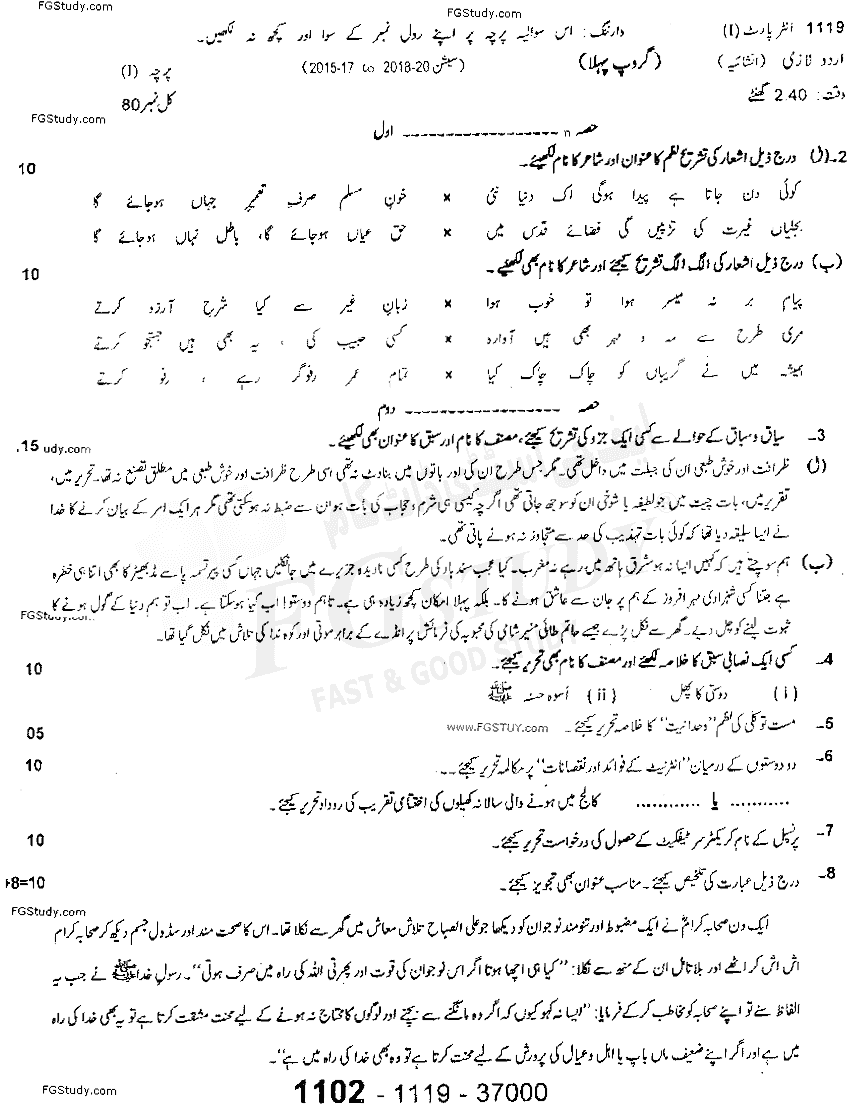 FGStudy.com
1119 انٹر پارٹ (I) وارننگ: اس سوالیہ پرچہ پر اپنے رول نمبر کے سوا اور کچھ نہ لکھیں۔
اردو لازمی (انشائیہ) (گروپ پہلا) (سیشن 20-2018 تا 17-2015) پرچہ (I)
وقت: 2.40 گھنٹے کل نمبر 80
FGStudy.com
حصہ ------------------ اول
2۔(ا) درج ذیل اشعار کی تشریح نظم کا عنوان اور شاعر کا نام لکھیئے۔ 10
کوئی دن جاتا ہے پیدا ہوگی اک دنیا نئی × خونِ مسلم صرفِ تعمیرِ جہاں ہوجائے گا
بجلیاں غیرت کی تڑپیں گی فضائے قدس میں × حق عیاں ہوجائے گا، باطل نہاں ہوجائے گا
(ب) درج ذیل اشعار کی الگ الگ تشریح کیجئے اور شاعر کا نام بھی لکھیئے۔ 10
پیام بر نہ میسر ہوا تو خوب ہوا × زبانِ غیر سے کیا شرحِ آرزو کرتے
مری طرح سے مہ و مہر بھی ہیں آوارہ × کسی حبیب کی ، یہ بھی ہیں جستجو کرتے
ہمیشہ میں نے گریباں کو چاک چاک کیا × تمام عمر رفوگر رہے ، رفو کرتے
حصہ ------------------ دوم
3۔ سیاق و سباق کے حوالے سے کسی ایک جزو کی تشریح کیجئے، مصنف کا نام اور سبق کا عنوان بھی لکھیئے۔ 15.
udy.com
(ا) ظرافت اور خوش طبعی ان کی جبلت میں داخل تھی۔ مگر جس طرح ان کی اور باتوں میں بناوٹ نہ تھی اسی طرح ظرافت اور خوش طبعی میں مطلق تصنع نہ تھا۔ تحریر میں،
تقریر میں، بات چیت میں جو لطیفہ یا شوخی ان کو سوجھ جاتی تھی اگرچہ کیسی ہی شرم و حجاب کی بات ہو ان سے ضبط نہ ہوسکتی تھی مگر ہر ایک امر کے بیان کرنے کا خدا
نے ایسا سلیقہ دیا تھا کہ کوئی بات تہذیب کی حد سے متجاوز نہ ہونے پاتی تھی۔
(ب) ہم سوچتے ہیں کہ کہیں ایسا نہ ہو مشرق ہاتھ میں رہے نہ مغرب۔ کیا عجب سندباد کی طرح کسی نادیدہ جزیرے میں جانکلیں جہاں کسی پیر تسمہ پا سے مڈبھیڑ کا بھی اتنا ہی خطرہ
ہے جتنا کسی شہزادی مہر افروز کے ہم پر جان سے عاشق ہونے کا۔ بلکہ پہلا امکان کچھ زیادہ ہی ہے۔ تاہم دوستو! اب کیا ہوسکتا ہے۔ اب تو ہم دنیا کے گول ہونے کا
FGStudy.com
ثبوت لینے کو چل دیے۔ گھر سے نکل پڑے جیسے حاتم طائی منیر شامی کی محبوبہ کی فرمائش پر انڈے کے برابر موتی اور کوہ ندا کی تلاش میں نکل گیا تھا۔
FG STUDY
FAST & GOOD STUDY
4۔ کسی ایک نصابی سبق کا خلاصہ لکھیئے اور مصنف کا نام بھی تحریر کیجئے۔ 10
(i) دوستی کا پھل (ii) اُسوہ حسنہ ﷺ
5۔ مست توکلی کی نظم "وحدانیت" کا خلاصہ تحریر کیجئے۔ 05
www.FGSTUY.com
6۔ دو دوستوں کے درمیان "انٹرنیٹ کے فوائد اور نقصانات" پر مکالمہ تحریر کیجئے۔۔ 10
............ یا ............ کالج میں ہونے والی سالانہ کھیلوں کی اختتامی تقریب کی روداد تحریر کیجئے۔
7۔ پرنسپل کے نام کریکٹر سرٹیفکیٹ کے حصول کی درخواست تحریر کیجئے۔ 10
8۔ درج ذیل عبارت کی تلخیص کیجئے۔ مناسب عنوان بھی تجویز کیجئے۔ +8=10
FGStudy.com
ایک دن صحابہ کرامؓ نے ایک مضبوط اور تنومند نوجوان کو دیکھا جو علی الصباح تلاش معاش میں گھر سے نکلا تھا۔ اس کا صحت مند اور سڈول جسم دیکھ کر صحابہ کرام
اش اش کر اٹھے اور بلا تامل ان کے منھ سے نکلا: "کیا ہی اچھا ہوتا اگر اس نوجوان کی قوت اور پھرتی اللہ کی راہ میں صرف ہوتی"۔ رسولِ خدا ﷺ نے جب یہ
الفاظ سنے تو اپنے صحابہ کو مخاطب کرکے فرمایا: "ایسا نہ کہو کیوں کہ اگر وہ مانگنے سے بچنے اور لوگوں کا محتاج نہ ہونے کے لیے محنت مشقت کرتا ہے تو یہ بھی خدا کی راہ
میں ہے اور اگر اپنے ضعیف ماں باپ یا اہل و عیال کی پرورش کے لیے محنت کرتا ہے تو وہ بھی خدا کی راہ میں ہے"۔
FGStudy.com
1102 - 1119 - 37000